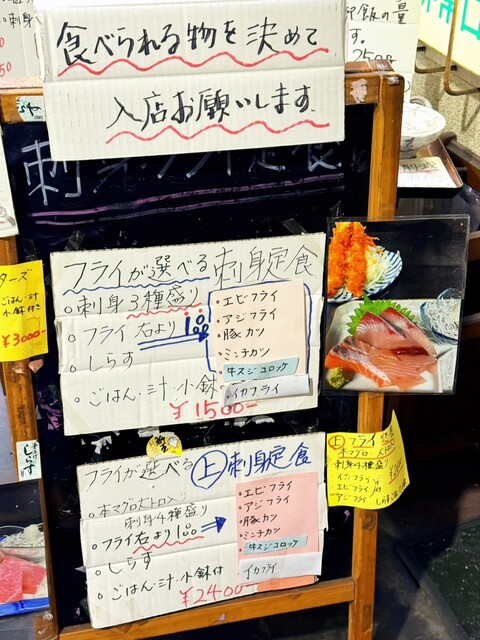 食べられる物を決めて
入店お願いします。
卯飯の量
す。
刺身フライ定食
フライが選べる刺身定食
○刺身3種盛り
○フライ右より1コ
○しらす
○ごはん・汁・小鉢付
¥1500-
・エビフライ
・アジフライ
・豚カツ
・ミンチカツ
・牛スジコロッケ
・イカフライ
フライが選べる上刺身定食
○本マグロ大トロ入り
刺身4種盛り
○フライ右より1コ
○しらす
○ごはん・汁・小鉢付
¥2400-
・エビフライ
・アジフライ
・豚カツ
・ミンチカツ
・牛スジコロッケ
・イカフライ
ターズ
ごはん・汁
小鉢付き
¥3000-
しらす
上フライ
本マグロ
刺身4種盛り
イカフライ
エビフライ
アジフライ